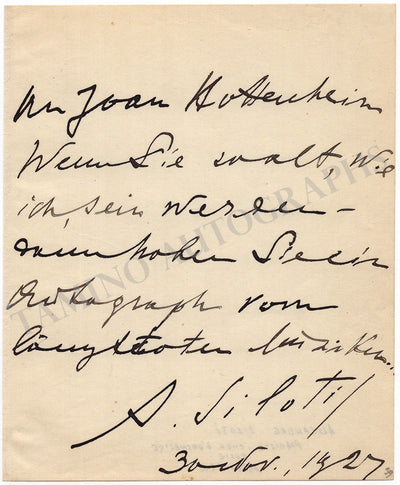 An Joan Hottenheim
Wenn Sie so alt, wie
ich, sein werden -
dann haben Sie ein
Autograph vom
längst toten Musiker...
A. Siloti
30 Nov., 1927
TAMINO AUTOGRAPHS